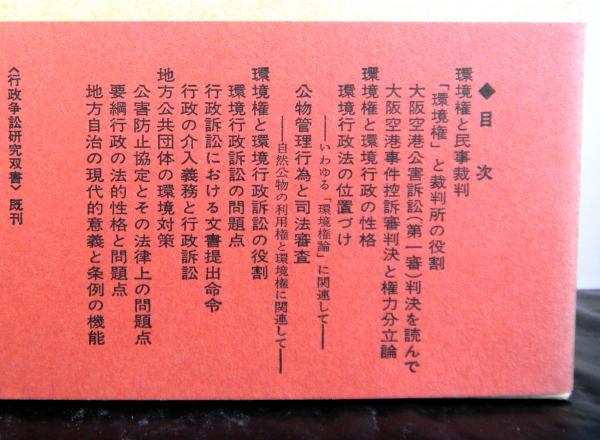 ◆目次
環境権と民事裁判
「環境権」と裁判所の役割
大阪空港公害訴訟(第一審)判決を読んで
大阪空港事件控訴審判決と権力分立論
環境権と環境行政の性格
環境行政法の位置づけ
――いわゆる「環境権論」に関連して――
公物管理行為と司法審査
――自然公物の利用権と環境権に関連して――
環境権と環境行政訴訟の役割
環境行政訴訟の問題点
行政訴訟における文書提出命令
行政の介入義務と行政訴訟
地方公共団体の環境対策
公害防止協定とその法律上の問題点
要綱行政の法的性格と問題点
地方自治の現代的意義と条例の機能
〈行政争訟研究双書〉既刊